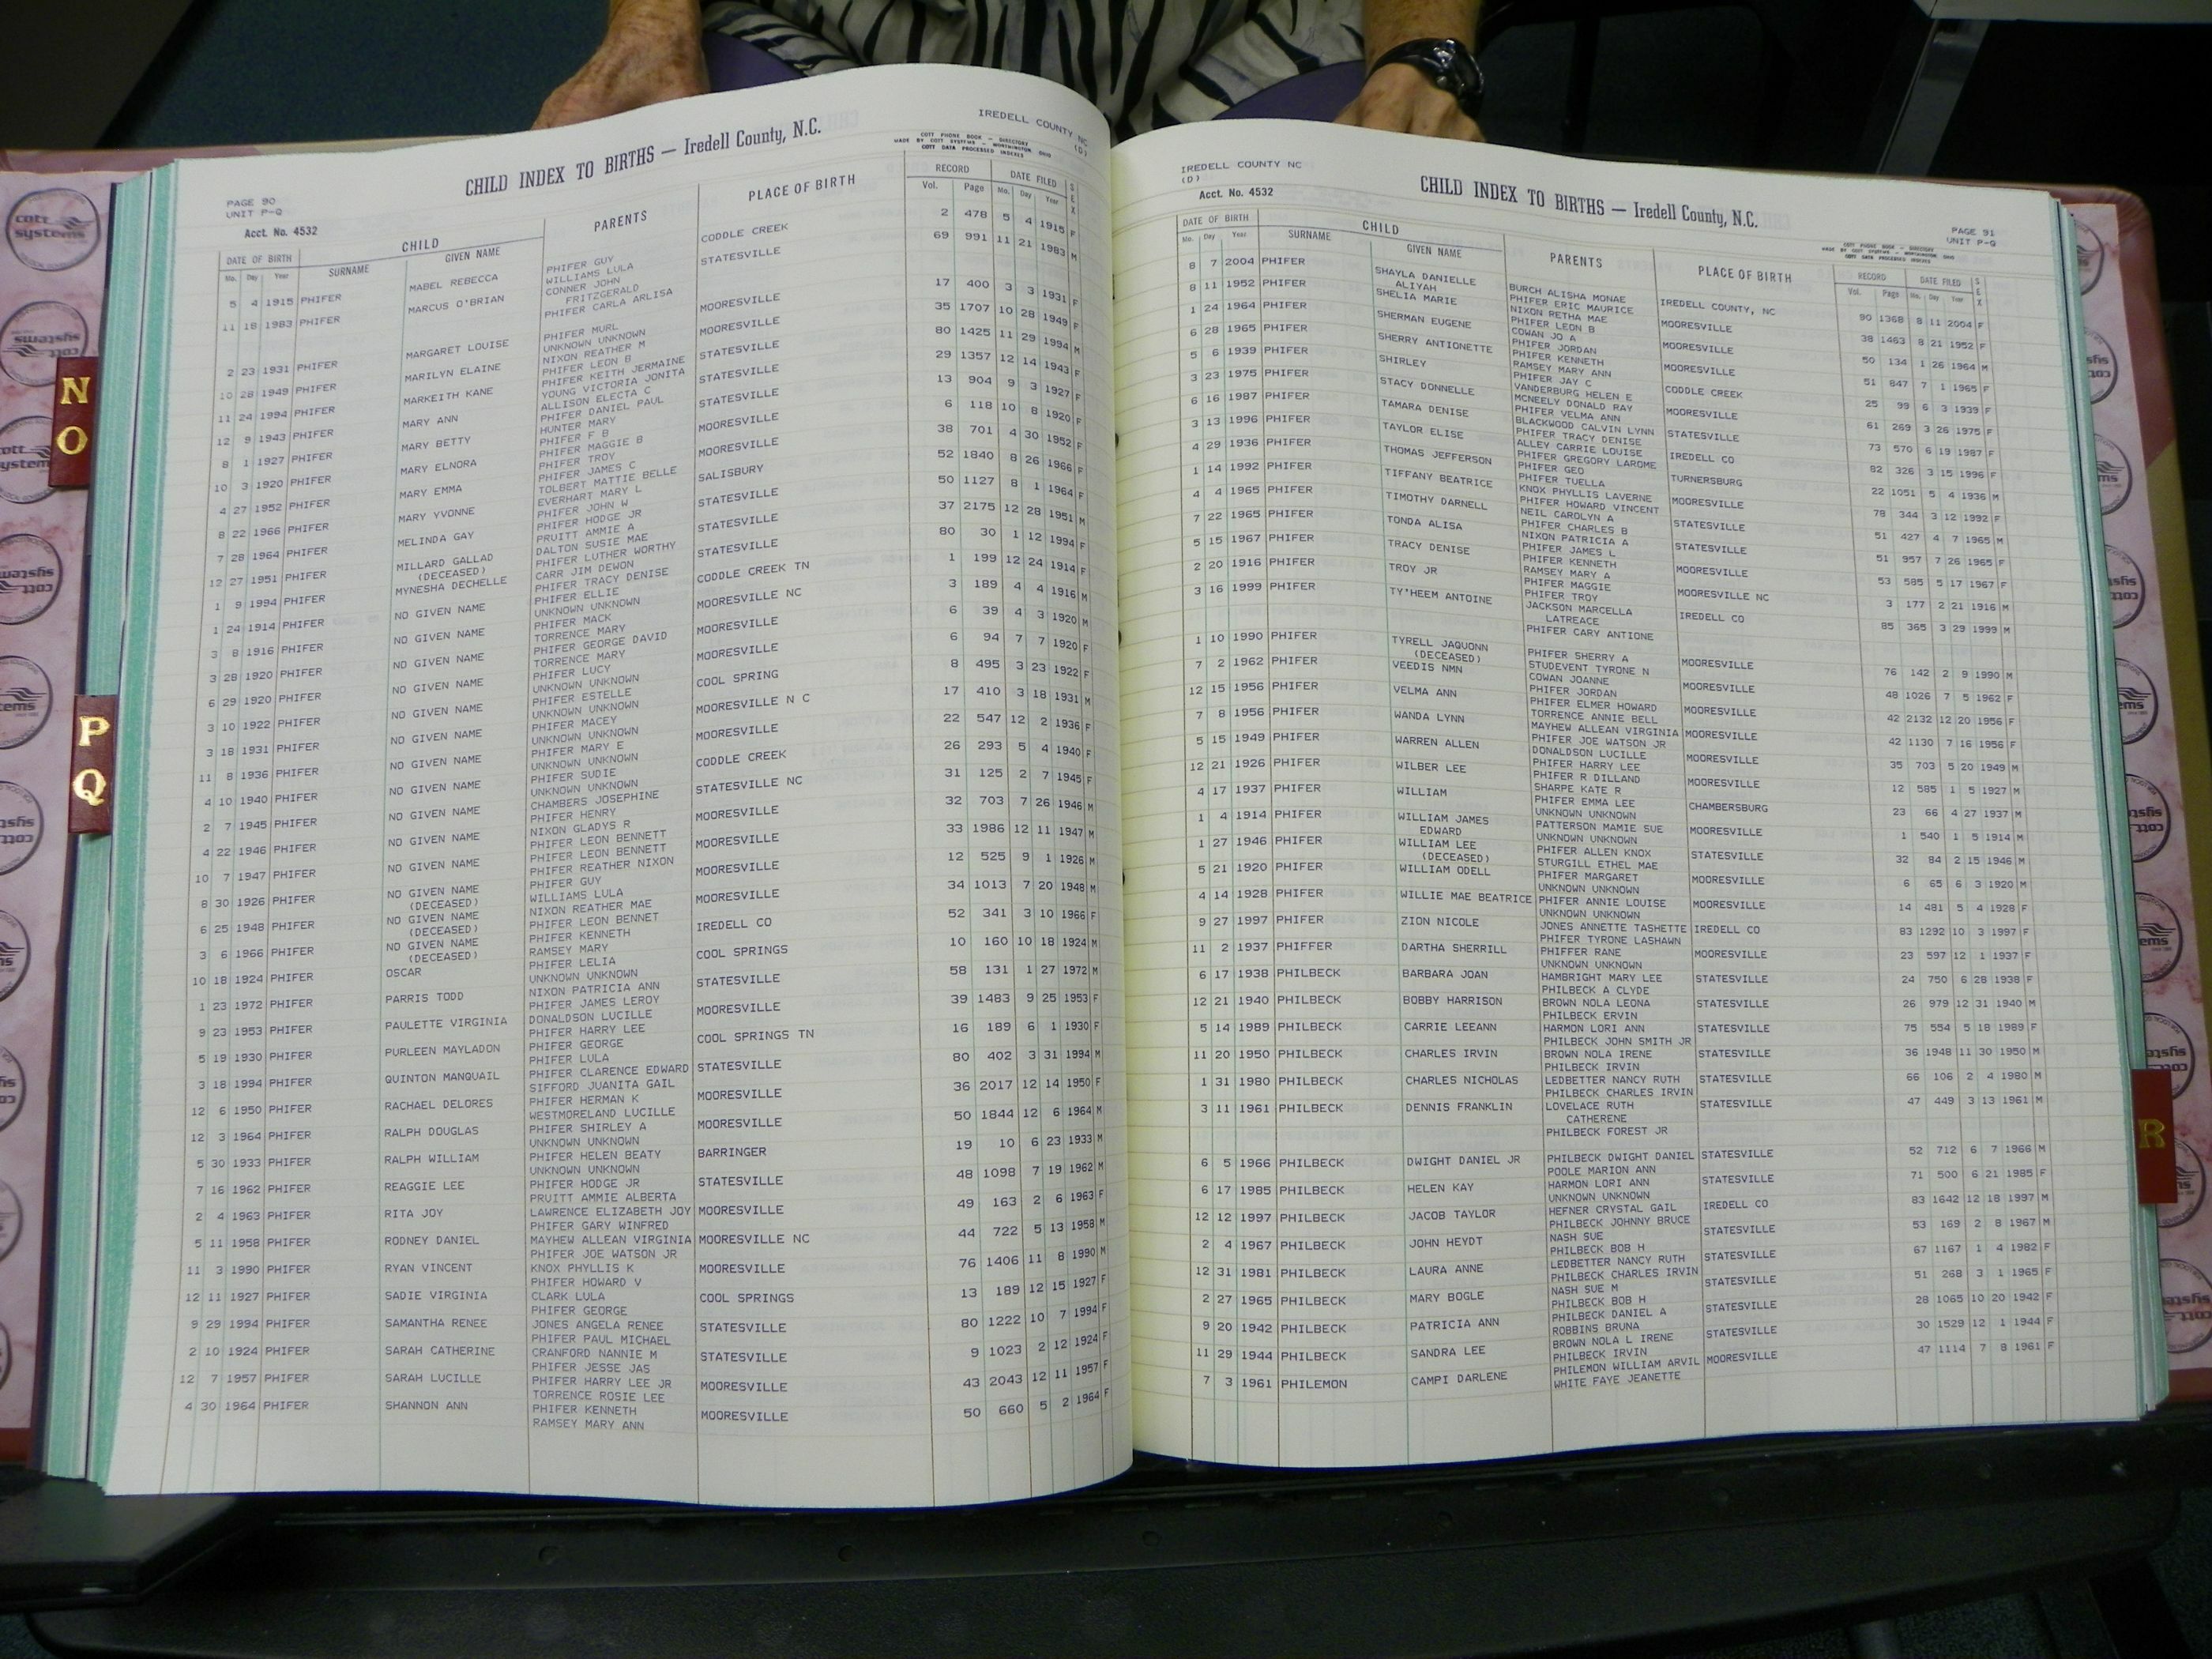 PAGE 90
UNIT P-Q
Acct. No. 4532
CHILD INDEX TO BIRTHS — Iredell County, N.C.
IREDELL COUNTY NC
(D)
COTT PHONE BOOK — DIRECTORY
MADE BY COTT SYSTEMS — WORTHINGTON, OHIO
COTT DATA PROCESSED INDEXES
DATE OF BIRTH CHILD PARENTS PLACE OF BIRTH RECORD DATE FILED SEX
Mo. Day Year SURNAME GIVEN NAME Vol. Page Mo. Day Year
5 4 1915 PHIFER MABEL REBECCA PHIFER GUY CODDLE CREEK 2 478 5 4 1915 F
WILLIAMS LULA
11 18 1983 PHIFER MARCUS O'BRIAN CONNER JOHN STATESVILLE 69 991 11 21 1983 M
FRITZGERALD
PHIFER CARLA ARLISA
2 23 1931 PHIFER MARGARET LOUISE PHIFER MURL MOORESVILLE 17 400 3 3 1931 F
UNKNOWN UNKNOWN
10 28 1949 PHIFER MARILYN ELAINE NIXON REATHER M MOORESVILLE 35 1707 10 28 1949 F
PHIFER LEON B
11 24 1994 PHIFER MARKEITH KANE PHIFER KEITH JERMAINE STATESVILLE 80 1425 11 29 1994 M
YOUNG VICTORIA JONITA
12 9 1943 PHIFER MARY ANN ALLISON ELECTA C STATESVILLE 29 1357 12 14 1943 F
PHIFER DANIEL PAUL
8 1 1927 PHIFER MARY BETTY HUNTER MARY STATESVILLE 13 904 9 3 1927 F
PHIFER F B
10 3 1920 PHIFER MARY ELNORA PHIFER MAGGIE B MOORESVILLE 6 118 10 8 1920 F
PHIFER TROY
4 27 1952 PHIFER MARY EMMA PHIFER JAMES C MOORESVILLE 38 701 4 30 1952 F
TOLBERT MATTIE BELLE
8 22 1966 PHIFER MARY YVONNE EVERHART MARY L SALISBURY 52 1840 8 26 1966 F
PHIFER JOHN W
7 28 1964 PHIFER MELINDA GAY PHIFER HODGE JR STATESVILLE 50 1127 8 1 1964 F
PRUITT AMMIE A
12 27 1951 PHIFER MILLARD GALLAD DALTON SUSIE MAE STATESVILLE 37 2175 12 28 1951 M
(DECEASED) PHIFER LUTHER WORTHY
1 9 1994 PHIFER MYNESHA DECHELLE CARR JIM DEWON STATESVILLE 80 30 1 12 1994 F
PHIFER TRACY DENISE
1 24 1914 PHIFER NO GIVEN NAME PHIFER ELLIE CODDLE CREEK TN 1 199 12 24 1914 F
UNKNOWN UNKNOWN
3 8 1916 PHIFER NO GIVEN NAME PHIFER MACK MOORESVILLE NC 3 189 4 4 1916 M
TORRENCE MARY
3 28 1920 PHIFER NO GIVEN NAME PHIFER GEORGE DAVID MOORESVILLE 6 39 4 3 1920 M
TORRENCE MARY
6 29 1920 PHIFER NO GIVEN NAME PHIFER LUCY MOORESVILLE 6 94 7 7 1920 F
UNKNOWN UNKNOWN
3 10 1922 PHIFER NO GIVEN NAME PHIFER ESTELLE COOL SPRING 8 495 3 23 1922 F
UNKNOWN UNKNOWN
3 18 1931 PHIFER NO GIVEN NAME PHIFER MACEY MOORESVILLE N C 17 410 3 18 1931 M
UNKNOWN UNKNOWN
11 8 1936 PHIFER NO GIVEN NAME PHIFER MARY E MOORESVILLE 22 547 12 2 1936 F
UNKNOWN UNKNOWN
4 10 1940 PHIFER NO GIVEN NAME PHIFER SUDIE CODDLE CREEK 26 293 5 4 1940 F
UNKNOWN UNKNOWN
2 7 1945 PHIFER NO GIVEN NAME CHAMBERS JOSEPHINE STATESVILLE NC 31 125 2 7 1945 F
PHIFER HENRY
4 22 1946 PHIFER NO GIVEN NAME NIXON GLADYS R MOORESVILLE 32 703 7 26 1946 M
PHIFER LEON BENNETT
10 7 1947 PHIFER NO GIVEN NAME PHIFER LEON BENNETT MOORESVILLE 33 1986 12 11 1947 M
PHIFER REATHER NIXON
8 30 1926 PHIFER NO GIVEN NAME PHIFER GUY MOORESVILLE 12 525 9 1 1926 M
(DECEASED) WILLIAMS LULA
6 25 1948 PHIFER NO GIVEN NAME NIXON REATHER MAE MOORESVILLE 34 1013 7 20 1948 M
(DECEASED) PHIFER LEON BENNET
3 6 1966 PHIFER NO GIVEN NAME PHIFER KENNETH IREDELL CO 52 341 3 10 1966 F
(DECEASED) RAMSEY MARY
10 18 1924 PHIFER OSCAR PHIFER LELIA COOL SPRINGS 10 160 10 18 1924 M
UNKNOWN UNKNOWN
1 23 1972 PHIFER PARRIS TODD NIXON PATRICIA ANN STATESVILLE 58 131 1 27 1972 M
PHIFER JAMES LEROY
9 23 1953 PHIFER PAULETTE VIRGINIA DONALDSON LUCILLE MOORESVILLE 39 1483 9 25 1953 F
PHIFER HARRY LEE
5 19 1930 PHIFER PURLEEN MAYLADON PHIFER GEORGE COOL SPRINGS TN 16 189 6 1 1930 F
PHIFER LULA
3 18 1994 PHIFER QUINTON MANQUAIL PHIFER CLARENCE EDWARD STATESVILLE 80 402 3 31 1994 M
SIFFORD JUANITA GAIL
12 6 1950 PHIFER RACHAEL DELORES PHIFER HERMAN K MOORESVILLE 36 2017 12 14 1950 F
WESTMORELAND LUCILLE
12 3 1964 PHIFER RALPH DOUGLAS PHIFER SHIRLEY A MOORESVILLE 50 1844 12 6 1964 M
UNKNOWN UNKNOWN
5 30 1933 PHIFER RALPH WILLIAM PHIFER HELEN BEATY BARRINGER 19 10 6 23 1933 M
UNKNOWN UNKNOWN
7 16 1962 PHIFER REAGGIE LEE PHIFER HODGE JR STATESVILLE 48 1098 7 19 1962 M
PRUITT AMMIE ALBERTA
2 4 1963 PHIFER RITA JOY LAWRENCE ELIZABETH JOY MOORESVILLE 49 163 2 6 1963 F
PHIFER GARY WINFRED
5 11 1958 PHIFER RODNEY DANIEL MAYHEW ALLEAN VIRGINIA MOORESVILLE NC 44 722 5 13 1958 M
PHIFER JOE WATSON JR
11 3 1990 PHIFER RYAN VINCENT KNOX PHYLLIS K MOORESVILLE 76 1406 11 8 1990 M
PHIFER HOWARD V
12 11 1927 PHIFER SADIE VIRGINIA CLARK LULA COOL SPRINGS 13 189 12 15 1927 F
PHIFER GEORGE
9 29 1994 PHIFER SAMANTHA RENEE JONES ANGELA RENEE STATESVILLE 80 1222 10 7 1994 F
PHIFER PAUL MICHAEL
2 10 1924 PHIFER SARAH CATHERINE CRANFORD NANNIE M STATESVILLE 9 1023 2 12 1924 F
PHIFER JESSE JAS
12 7 1957 PHIFER SARAH LUCILLE PHIFER HARRY LEE JR MOORESVILLE 43 2043 12 11 1957 F
TORRENCE ROSIE LEE
4 30 1964 PHIFER SHANNON ANN PHIFER KENNETH MOORESVILLE 50 660 5 2 1964 F
RAMSEY MARY ANN
IREDELL COUNTY NC
(D)
Acct. No. 4532
CHILD INDEX TO BIRTHS — Iredell County, N.C.
PAGE 91
UNIT P-Q
COTT PHONE BOOK — DIRECTORY
MADE BY COTT SYSTEMS — WORTHINGTON, OHIO
COTT DATA PROCESSED INDEXES
DATE OF BIRTH CHILD PARENTS PLACE OF BIRTH RECORD DATE FILED SEX
Mo. Day Year SURNAME GIVEN NAME Vol. Page Mo. Day Year
8 7 2004 PHIFER SHAYLA DANIELLE BURCH ALISHA MONAE IREDELL COUNTY, NC 90 1368 8 11 2004 F
ALIYAH PHIFER ERIC MAURICE
8 11 1952 PHIFER SHELIA MARIE NIXON RETHA MAE MOORESVILLE 38 1463 8 21 1952 F
PHIFER LEON B
1 24 1964 PHIFER SHERMAN EUGENE COWAN JO A MOORESVILLE 50 134 1 26 1964 M
PHIFER JORDAN
6 28 1965 PHIFER SHERRY ANTIONETTE PHIFER KENNETH MOORESVILLE 51 847 7 1 1965 F
RAMSEY MARY ANN
5 6 1939 PHIFER SHIRLEY PHIFER JAY C CODDLE CREEK 25 99 6 3 1939 F
VANDERBURG HELEN E
3 23 1975 PHIFER STACY DONNELLE MCNEELY DONALD RAY MOORESVILLE 61 269 3 26 1975 F
PHIFER VELMA ANN
6 16 1987 PHIFER TAMARA DENISE BLACKWOOD CALVIN LYNN STATESVILLE 73 570 6 19 1987 F
PHIFER TRACY DENISE
3 13 1996 PHIFER TAYLOR ELISE ALLEY CARRIE LOUISE IREDELL CO 82 326 3 15 1996 F
PHIFER GREGORY LAROME
4 29 1936 PHIFER THOMAS JEFFERSON PHIFER GEO TURNERSBURG 22 1051 5 4 1936 M
PHIFER TUELLA
1 14 1992 PHIFER TIFFANY BEATRICE KNOX PHYLLIS LAVERNE MOORESVILLE 78 344 3 12 1992 F
PHIFER HOWARD VINCENT
4 4 1965 PHIFER TIMOTHY DARNELL NEIL CAROLYN A STATESVILLE 51 427 4 7 1965 M
PHIFER CHARLES B
7 22 1965 PHIFER TONDA ALISA NIXON PATRICIA A STATESVILLE 51 957 7 26 1965 F
PHIFER JAMES L
5 15 1967 PHIFER TRACY DENISE PHIFER KENNETH MOORESVILLE 53 585 5 17 1967 F
RAMSEY MARY A
2 20 1916 PHIFER TROY JR PHIFER MAGGIE MOORESVILLE NC 3 177 2 21 1916 M
PHIFER TROY
3 16 1999 PHIFER TY'HEEM ANTOINE JACKSON MARCELLA IREDELL CO 85 365 3 29 1999 M
LATREACE
PHIFER CARY ANTIONE
1 10 1990 PHIFER TYRELL JAQUONN PHIFER SHERRY A MOORESVILLE 76 142 2 9 1990 M
(DECEASED) STUDEVENT TYRONE N
7 2 1962 PHIFER VEEDIS NMN COWAN JOANNE MOORESVILLE 48 1026 7 5 1962 F
PHIFER JORDAN
12 15 1956 PHIFER VELMA ANN PHIFER ELMER HOWARD MOORESVILLE 42 2132 12 20 1956 F
TORRENCE ANNIE BELL
7 8 1956 PHIFER WANDA LYNN MAYHEW ALLEAN VIRGINIA MOORESVILLE 42 1130 7 16 1956 F
PHIFER JOE WATSON JR
5 15 1949 PHIFER WARREN ALLEN DONALDSON LUCILLE MOORESVILLE 35 703 5 20 1949 M
PHIFER HARRY LEE
12 21 1926 PHIFER WILBER LEE PHIFER R DILLAND MOORESVILLE 12 585 1 5 1927 M
SHARPE KATE R
4 17 1937 PHIFER WILLIAM PHIFER EMMA LEE CHAMBERSBURG 23 66 4 27 1937 M
UNKNOWN UNKNOWN
1 4 1914 PHIFER WILLIAM JAMES PATTERSON MAMIE SUE MOORESVILLE 1 540 1 5 1914 M
EDWARD UNKNOWN UNKNOWN
1 27 1946 PHIFER WILLIAM LEE PHIFER ALLEN KNOX STATESVILLE 32 84 2 15 1946 M
(DECEASED) STURGILL ETHEL MAE
5 21 1920 PHIFER WILLIAM ODELL PHIFER MARGARET MOORESVILLE 6 65 6 3 1920 M
UNKNOWN UNKNOWN
4 14 1928 PHIFER WILLIE MAE BEATRICE PHIFER ANNIE LOUISE MOORESVILLE 14 481 5 4 1928 F
UNKNOWN UNKNOWN
9 27 1997 PHIFER ZION NICOLE JONES ANNETTE TASHETTE IREDELL CO 83 1292 10 3 1997 F
PHIFER TYRONE LASHAWN
11 2 1937 PHIFFER DARTHA SHERRILL PHIFFER RANE MOORESVILLE 23 597 12 1 1937 F
UNKNOWN UNKNOWN
6 17 1938 PHILBECK BARBARA JOAN HAMBRIGHT MARY LEE STATESVILLE 24 750 6 28 1938 F
PHILBECK A CLYDE
12 21 1940 PHILBECK BOBBY HARRISON BROWN NOLA LEONA STATESVILLE 26 979 12 31 1940 M
PHILBECK ERVIN
5 14 1989 PHILBECK CARRIE LEEANN HARMON LORI ANN STATESVILLE 75 554 5 18 1989 F
PHILBECK JOHN SMITH JR
11 20 1950 PHILBECK CHARLES IRVIN BROWN NOLA IRENE STATESVILLE 36 1948 11 30 1950 M
PHILBECK IRVIN
1 31 1980 PHILBECK CHARLES NICHOLAS LEDBETTER NANCY RUTH STATESVILLE 66 106 2 4 1980 M
PHILBECK CHARLES IRVIN
3 11 1961 PHILBECK DENNIS FRANKLIN LOVELACE RUTH STATESVILLE 47 449 3 13 1961 M
CATHERENE
PHILBECK FOREST JR
6 5 1966 PHILBECK DWIGHT DANIEL JR PHILBECK DWIGHT DANIEL STATESVILLE 52 712 6 7 1966 M
POOLE MARION ANN
6 17 1985 PHILBECK HELEN KAY HARMON LORI ANN STATESVILLE 71 500 6 21 1985 F
UNKNOWN UNKNOWN
12 12 1997 PHILBECK JACOB TAYLOR HEFNER CRYSTAL GAIL IREDELL CO 83 1642 12 18 1997 M
PHILBECK JOHNNY BRUCE
2 4 1967 PHILBECK JOHN HEYDT NASH SUE STATESVILLE 53 169 2 8 1967 M
PHILBECK BOB H
12 31 1981 PHILBECK LAURA ANNE LEDBETTER NANCY RUTH STATESVILLE 67 1167 1 4 1982 F
PHILBECK CHARLES IRVIN
2 27 1965 PHILBECK MARY BOGLE NASH SUE M STATESVILLE 51 268 3 1 1965 F
PHILBECK BOB H
9 20 1942 PHILBECK PATRICIA ANN PHILBECK DANIEL A STATESVILLE 28 1065 10 20 1942 F
ROBBINS BRUNA
11 29 1944 PHILBECK SANDRA LEE BROWN NOLA L IRENE STATESVILLE 30 1529 12 1 1944 F
PHILBECK IRVIN
7 3 1961 PHILEMON CAMPI DARLENE PHILEMON WILLIAM ARVIL MOORESVILLE 47 1114 7 8 1961 F
WHITE FAYE JEANETTE
N
O
P
Q
R
cott
systems